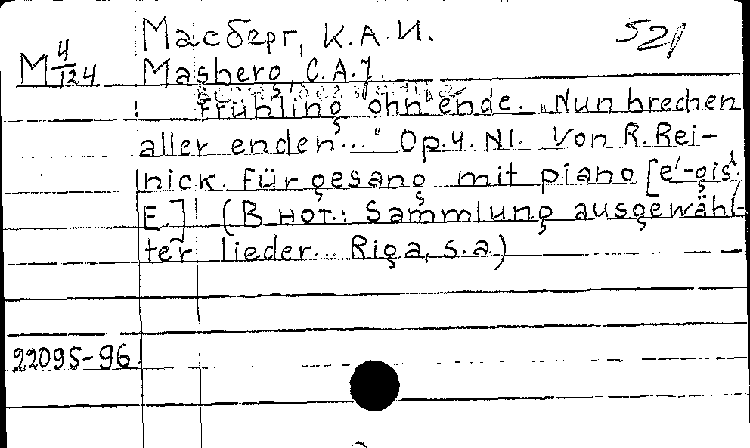 Масберг, К.А.И.
521
M 4/124
Masberg, C.A.J.
Frühling ohn' ende. "Nun brechen
aller enden..." Op.4. N1. Von R. Rei-
nick. Für gesang mit piano [e'-gis².
E.] (В нот.: Sammlung ausgewähl-
ter lieder... Riga, s.a.)
22095-96.